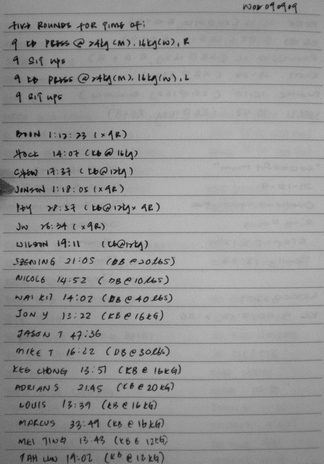 WOD 090909
FIVE ROUNDS FOR TIME OF:
9 KB PRESS @ 24kg (M), 16kg (W), R
9 SIT UPS
9 KB PRESS @ 24kg (M), 16kg (W), L
9 SIT UPS
1:12:23 (x 9R)
14:07 (KB @ 16kg)
CHEW 17:37 (KB @ 12kg)
JONSEN 1:18:05 (x 9R)
28:57 (KB @ 12kg x 9R)
JW 26:34 (x 9R)
WILSON 19:11 (KB @ 12kg)
21:05 (DB @ 20LBS)
NICOLE 14:52 (DB @ 10LBS)
WAI KIT 14:02 (DB @ 40LBS)
JON Y 13:22 (KB @ 16KG)
JASON T 47:36
MIKE T 16:22 (DB @ 30LBS)
KEG CHONG 13:51 (KB @ 16KG)
ADRIAN S 21:45 (KB @ 20KG)
LOUIS 13:39 (KB @ 16KG)
MARCUS 33:49 (KB @ 16KG)
MEI TING 13:43 (KB @ 12KG)
19:02 (KB @ 12KG)